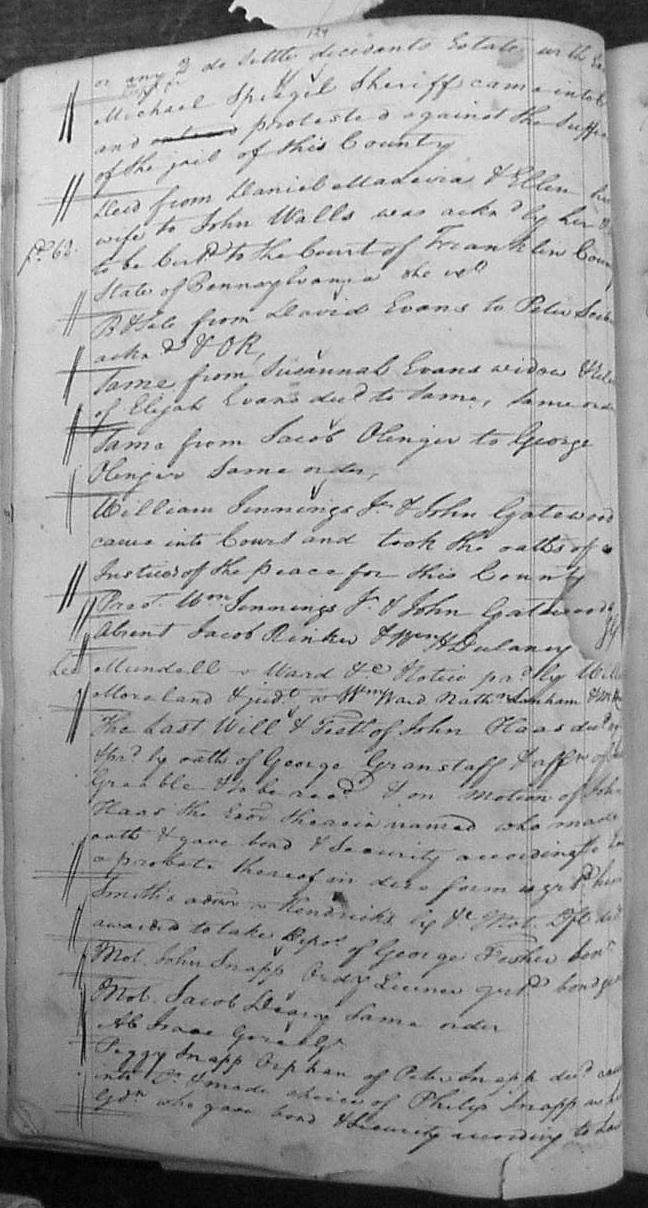 129
or any 3 do settle decedents Estate with
Michael Spiegil Sheriff came into
and protested against the Suffi
of the jail of this County
Deed from Daniel Madeira & Ellin his
wife to John Walls was ackd by her &
pd 62.
to be Certd to the Court of Franklin Coun
State of Pennsylvania
B & Sale from David Evans to Peter
ackd & OR,
Same from Susannah Evans widow &
of Elijah Evans decd to Same, Same orde
Same from Jacob Olinger to George
Olinger Same order,
William Jennings Jr & John Gatewood
came into Court and took the oaths of a
Justice of the peace for this County
Prest Wm Jennings Jr & John Gatewood
Absent Jacob Rinker & Wm H Dulaney
Mundell v Ward & c Notice pr by Will
Moreland & judt v Wm Ward Nathn Lanham &
The Last Will & Testt of John Haas decd
& pr by oaths of George Granstaff & affn of
Grabble & to be recd & on motion of John
Haas the Exor therein named who made
oath & gave bond & Security according to
a probate thereof in due form is grtd him
Smith's admr v Kendrick Mot. Dft
awarded to take Depos of George Fisher
Mot. John Snapp Ordy License grtd bond
Mot. Jacob Deary Same order
Ab Isaac
Peggy Snapp Orphan of Peter Snapp decd came
into Ct & made choice of Philip Snapp as her
Gdn who gave bond & Security according to Law